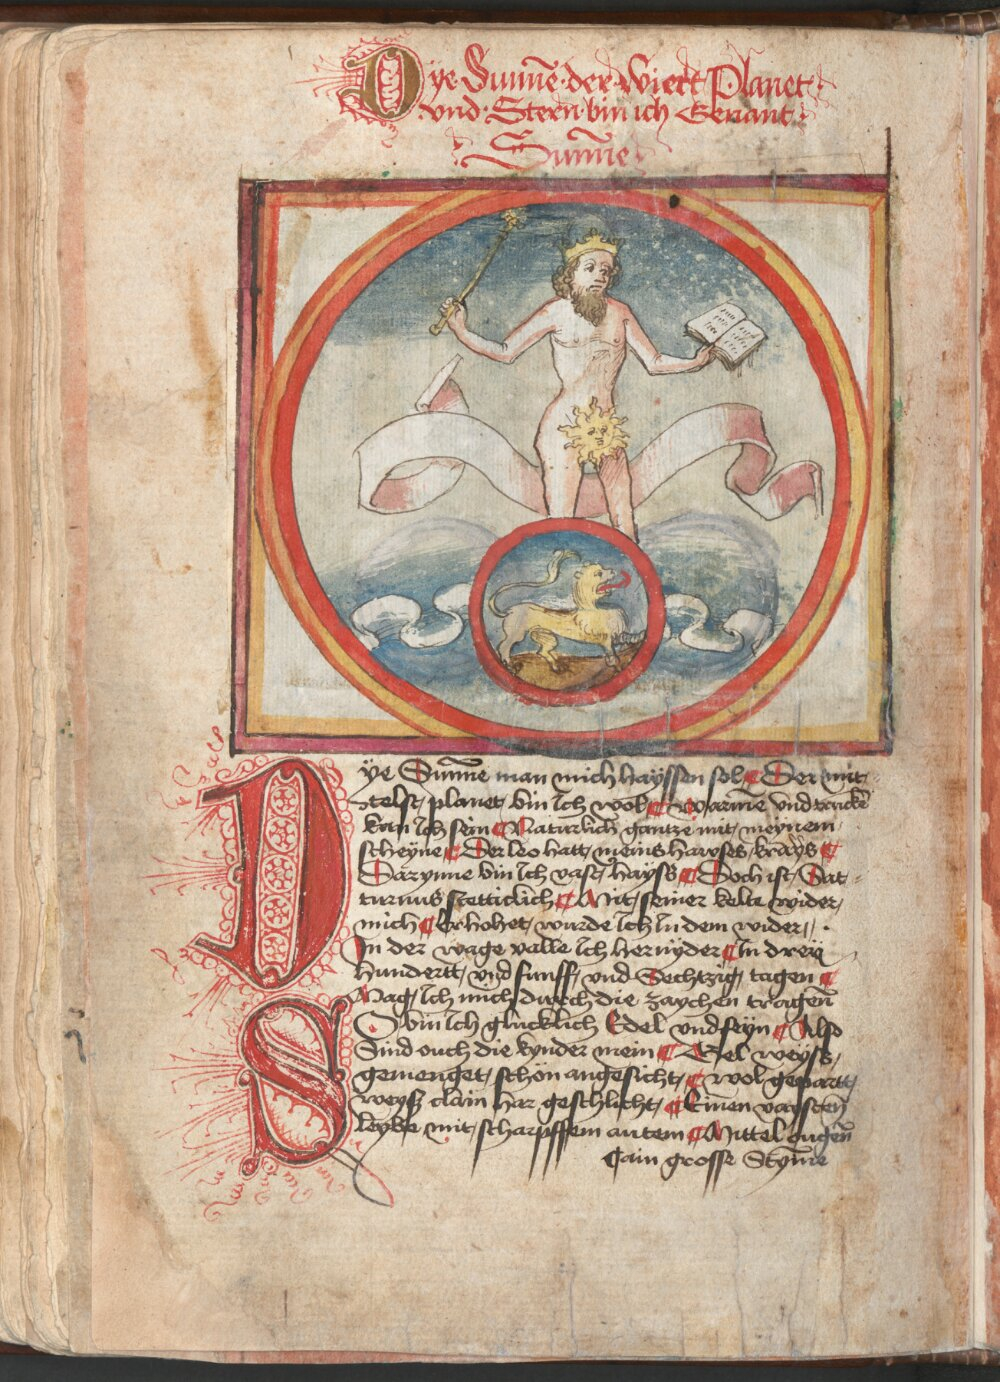 Dye Sunne der Viert Planet
vnd Stern bin ich Genant
Sunne
Dye Sunne man mich hayssen sol Der mit-
telst planet bin Ich wol Warme vnd trucken
kan Ich sein Naturlich gantze mit meynem
scheyne Der leo hatt meins hawses krays
Darynne bin Ich vast hayss Doch ist Sat-
turnus stetticlich Mit seiner kelte wider
mich Erhohet wurde Ich In dem wider
In der wage valle Ich hernyder In drey
hundertt vnd funff vnd Sechtzig tagen
Mag Ich mich durch die zaychen tragen
So bin Ich glucklich Edel vnd feyn Also
Sind ouch die kynder mein Gel weyss
gemenget schon angesicht wol gepartt
weyss clain har geschlicht Einen vaysten
leybe mit scharpffem Mittel augen
Cain grosse Stymе